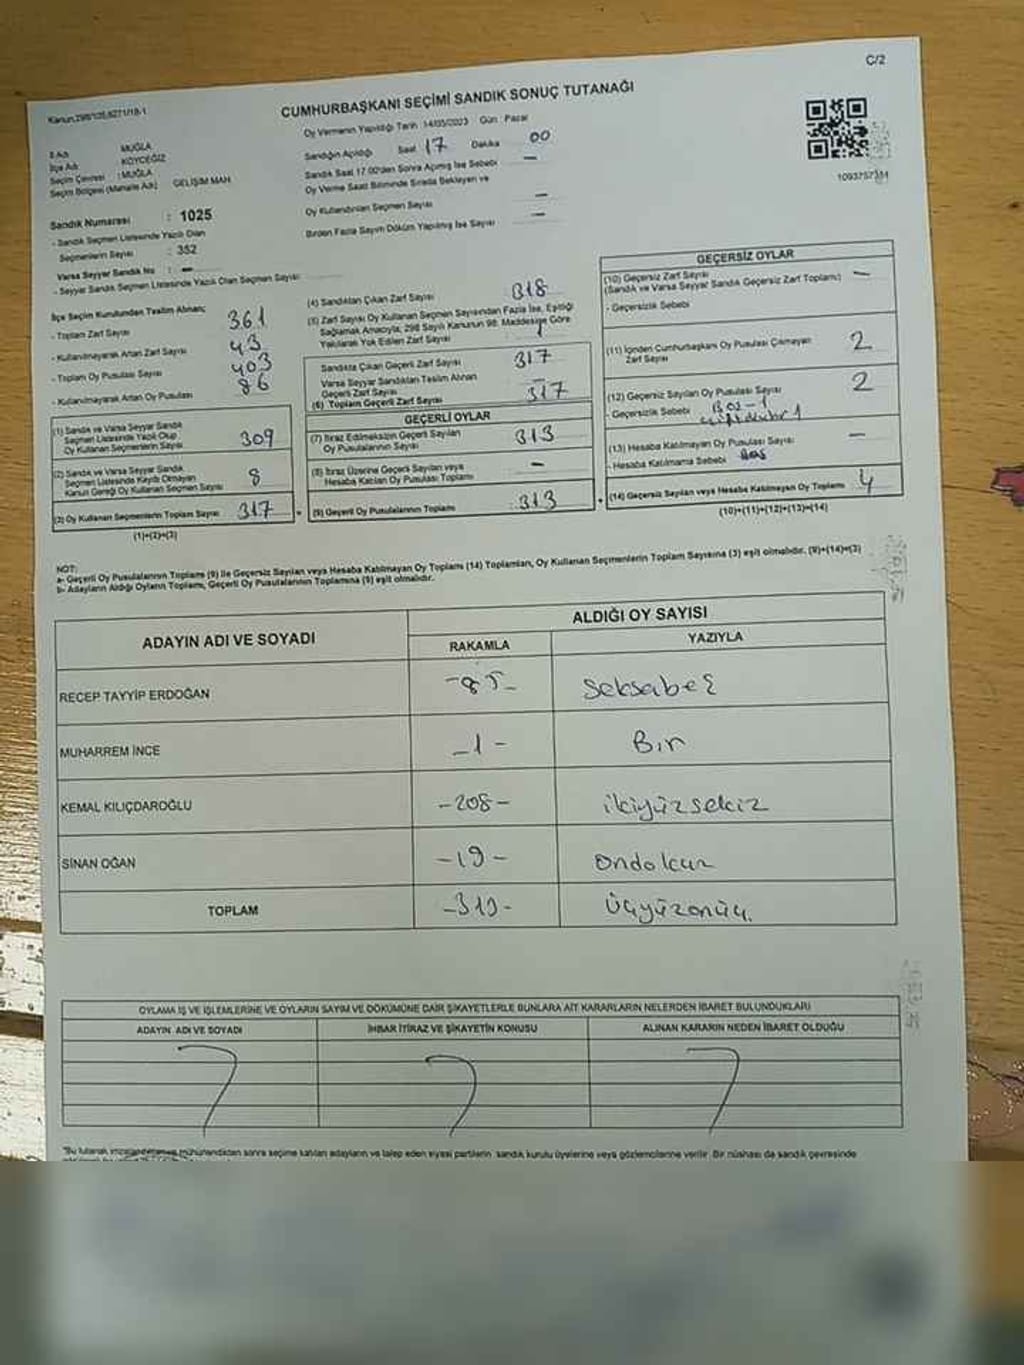 C/2
Kanun:298/105,6271/18-1
CUMHURBAŞKANI SEÇİMİ SANDIK SONUÇ TUTANAĞI
Oy Vermenin Yapıldığı Tarih 14/05/2023 Gün : Pazar
İl Adı : MUĞLA
İlçe Adı : KÖYCEĞİZ
Seçim Çevresi : MUĞLA
Seçim Bölgesi (Mahalle Adı) GELİŞİM MAH
Sandık Numarası : 1025
- Sandık Seçmen Listesinde Yazılı Olan
Seçmenlerin Sayısı : 352
Varsa Seyyar Sandık No : -
- Seyyar Sandık Seçmen Listesinde Yazılı Olan Seçmen Sayısı
Sandığın Açıldığı Saat 17 Dakika 00
Sandık Saat 17.00'den Sonra Açılmış İse Sebebi -
Oy Verme Saati Bitiminde Sırada Bekleyen ve
Oy Kullandırılan Seçmen Sayısı -
Birden Fazla Sayım Döküm Yapılmış İse Sayısı -
İlçe Seçim Kurulundan Teslim Alınan;
- Toplam Zarf Sayısı 361
- Kullanılmayarak Artan Zarf Sayısı 43
- Toplam Oy Pusulası Sayısı 403
- Kullanılmayarak Artan Oy Pusulası 86
(1) Sandık ve Varsa Seyyar Sandık
Seçmen Listesinde Yazılı Olup
Oy Kullanan Seçmenlerin Sayısı 309
(2) Sandık ve Varsa Seyyar Sandık
Seçmen Listesinde Kaydı Olmayan
Kanun Gereği Oy Kullanan Seçmen Sayısı 8
(3) Oy Kullanan Seçmenlerin Toplam Sayısı 317
(1)+(2)=(3)
(4) Sandıktan Çıkan Zarf Sayısı 318
(5) Zarf Sayısı Oy Kullanan Seçmen Sayısından Fazla İse, Eşitliği
Sağlamak Amacıyla; 298 Sayılı Kanunun 98. Maddesine Göre
Yakılarak Yok Edilen Zarf Sayısı 1
Sandıkta Çıkan Geçerli Zarf Sayısı 317
Varsa Seyyar Sandıktan Teslim Alınan
Geçerli Zarf Sayısı -
(6) Toplam Geçerli Zarf Sayısı 317
GEÇERLİ OYLAR
(7) İtiraz Edilmeksizin Geçerli Sayılan
Oy Pusulalarının Sayısı 313
(8) İtiraz Üzerine Geçerli Sayılan veya
Hesaba Katılan Oy Pusulası Toplamı -
(9) Geçerli Oy Pusulalarının Toplamı 313
1093757314
GEÇERSİZ OYLAR
(10) Geçersiz Zarf Sayısı
(Sandık ve Varsa Seyyar Sandık Geçersiz Zarf Toplamı) -
- Geçersizlik Sebebi
(11) İçinden Cumhurbaşkanı Oy Pusulası Çıkmayan
Zarf Sayısı 2
(12) Geçersiz Sayılan Oy Pusulası Sayısı 2
- Geçersizlik Sebebi Boş-1
(13) Hesaba Katılmayan Oy Pusulası Sayısı -
- Hesaba Katılmama Sebebi
(14) Geçersiz Sayılan veya Hesaba Katılmayan Oy Toplamı 4
(10)+(11)+(12)+(13)=(14)
NOT:
a- Geçerli Oy Pusulalarının Toplamı (9) ile Geçersiz Sayılan veya Hesaba Katılmayan Oy Toplamı (14) Toplamları, Oy Kullanan Seçmenlerin Toplam Sayısına (3) eşit olmalıdır. (9)+(14)=(3)
b- Adayların Aldığı Oyların Toplamı, Geçerli Oy Pusulalarının Toplamına (9) eşit olmalıdır.
ADAYIN ADI VE SOYADI
ALDIĞI OY SAYISI
RAKAMLA YAZIYLA
RECEP TAYYİP ERDOĞAN -85- seksabeş
MUHARREM İNCE -1- Bir
KEMAL KILIÇDAROĞLU -208- ikiyüzsekiz
SİNAN OĞAN -19- ondokuz
TOPLAM -313- üçyüzonüç.
OYLAMA İŞ VE İŞLEMLERİNE VE OYLARIN SAYIM VE DÖKÜMÜNE DAİR ŞİKAYETLERLE BUNLARA AİT KARARLARIN NELERDEN İBARET BULUNDUKLARI
ADAYIN ADI VE SOYADI İHBAR İTİRAZ VE ŞİKAYETİN KONUSU ALINAN KARARIN NEDEN İBARET OLDUĞU
"Bu tutanak imzalandıktan ve mühürlendikten sonra seçime katılan adayların ve talep eden siyasi partilerin sandık kurulu üyelerine veya gözlemcilerine verilir. Bir nüshası da sandık çevresinde